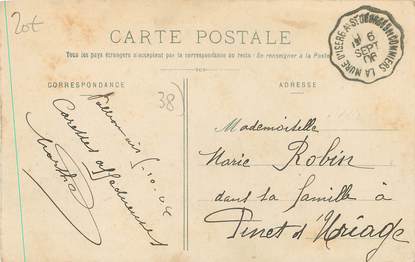 20€
CARTE POSTALE
Tous les pays étrangers n'acceptent pas la correspondance au recto. - Se renseigner à la Poste
CORRESPONDANCE
ADRESSE
LA MURE D'ISERE A ST GEORGES DE COMMIERS
6
SEPT
38
Caresses affectueuses
Marthe
Mademoiselle
Marie Robin
dans sa famille à
Pinet d'Uriage